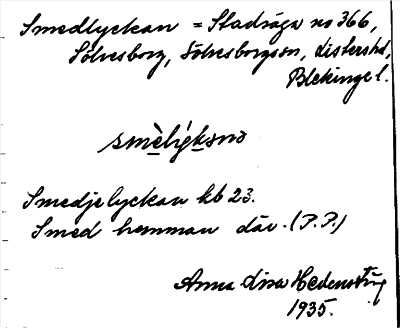 Smedlyckan = Stadsäga no 366,
Sölvesborg, Sölvesborgssn, Listershd,
Blekinge l.
Smedjelyckan kb 23.
Smed hemman där. (P.P.)
Anna Lisa Hedenstig
1935.